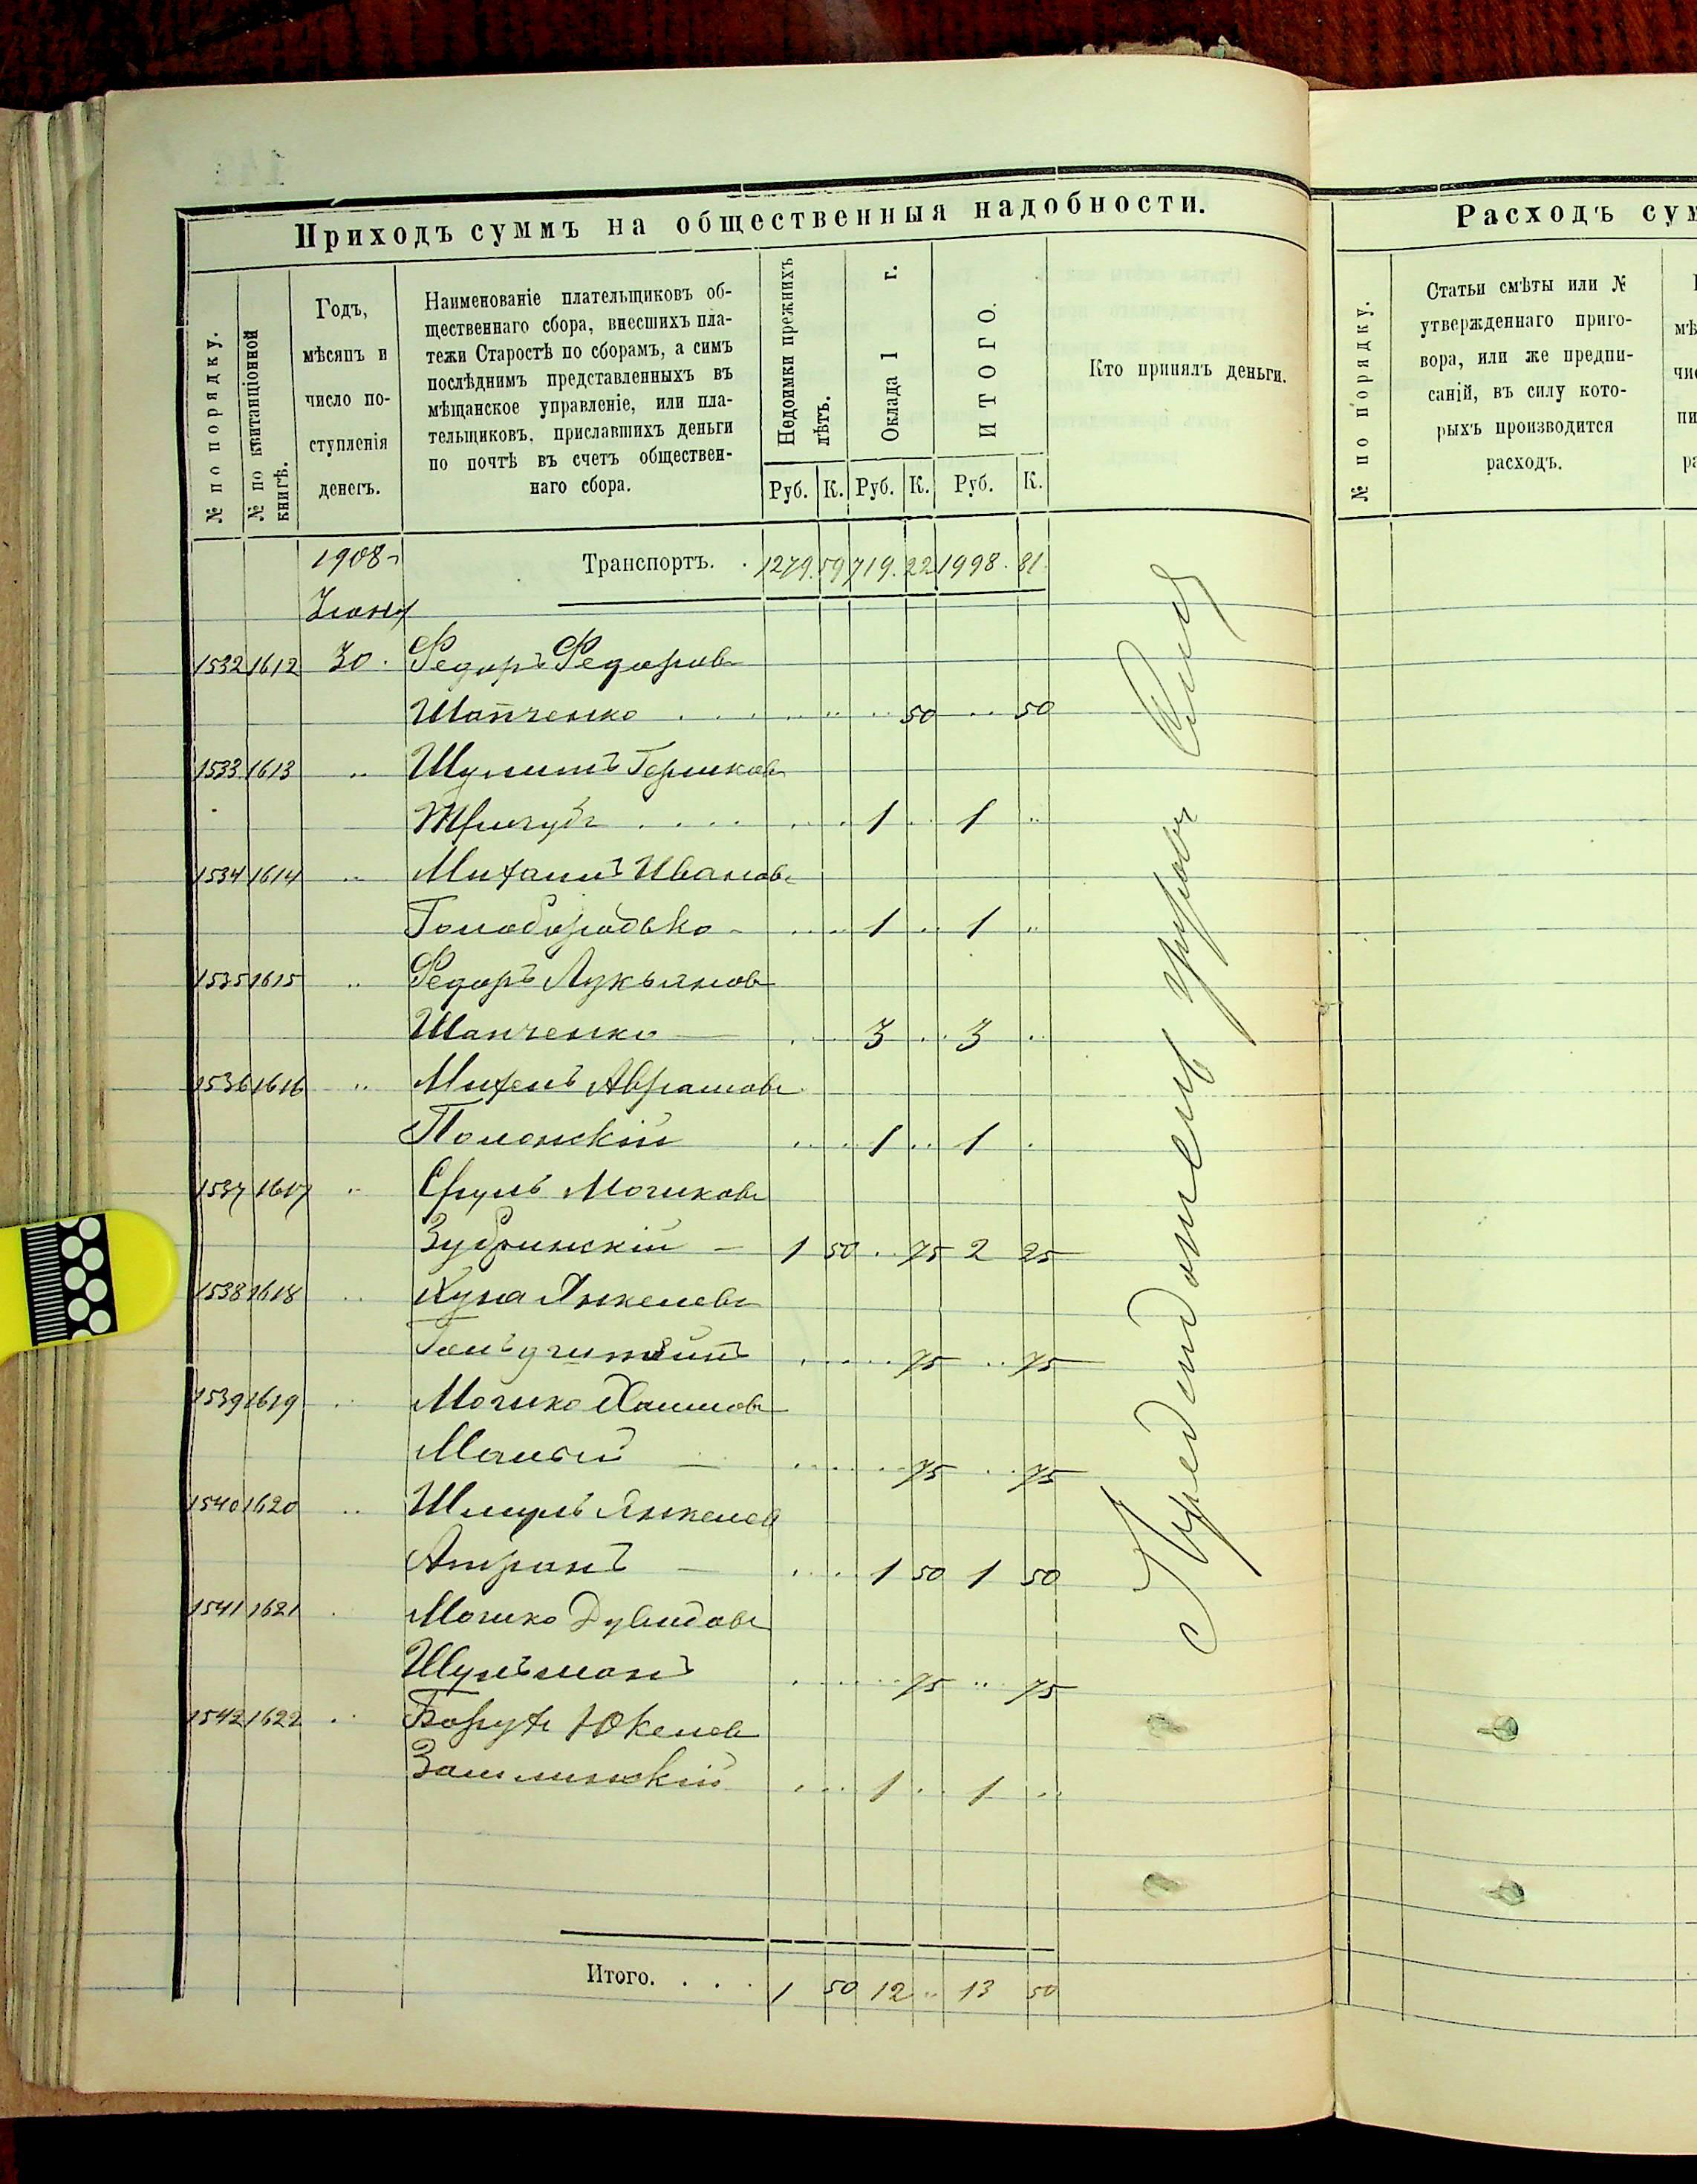 Приходъ суммъ на общественныя надобности.
№ по порядку.
№ по квитанціонной книгѣ.
Годъ,
мѣсяцъ и
число по-
ступленія
денегъ.
Наименованіе плательщиковъ об-
щественнаго сбора, внесшихъ пла-
тежи Старостѣ по сборамъ, а симъ
послѣднимъ представленныхъ въ
мѣщанское управленіе, или пла-
тельщиковъ, приславшихъ деньги
по почтѣ въ счетъ обществен-
наго сбора.
Недоимки прежнихъ лѣтъ.
Оклада 1 г.
ИТОГО.
Кто принялъ деньги.
Руб. К. Руб. К. Руб. К.
1908 г Транспортъ. . 1279. 59 719. 22 1998. 81.
Іюня
1532 1612 30. Федоръ Федоровъ
Шапченко . . . . 50 .. 50
1533 1613 ..
. . . . 1 .. 1 ..
1534 1614 .. Михаилъ Ивановъ
Голобородько - 1 .. 1 ..
1535 1615 .. Федоръ Лукьяновъ
Шапченко — 3 .. 3 ..
1536 1616 .. Михель Аврамовъ
Полонскій 1 .. 1 .
1537 1617 .. Сруль Мошковъ
— 1 50 .. 75 2 25
1538 1618 .. Янкелевъ
75 .. 75
1539 1619 .. Мошко Хаимовъ
Малый — 75 .. 75
1540 1620 .. Шмуль Янкелев
— 1 50 1 50
1541 1621 . Мошко Дувидовъ
Шульманъ 75 .. 75
1542 1622 ..
1 .. 1 ..
Итого. . . . 1 50 12 .. 13 50
Расходъ сум
№ по порядку.
Статьи смѣты или №
утвержденнаго приго-
вора, или же предпи-
саній, въ силу кото-
рыхъ производится
расходъ.